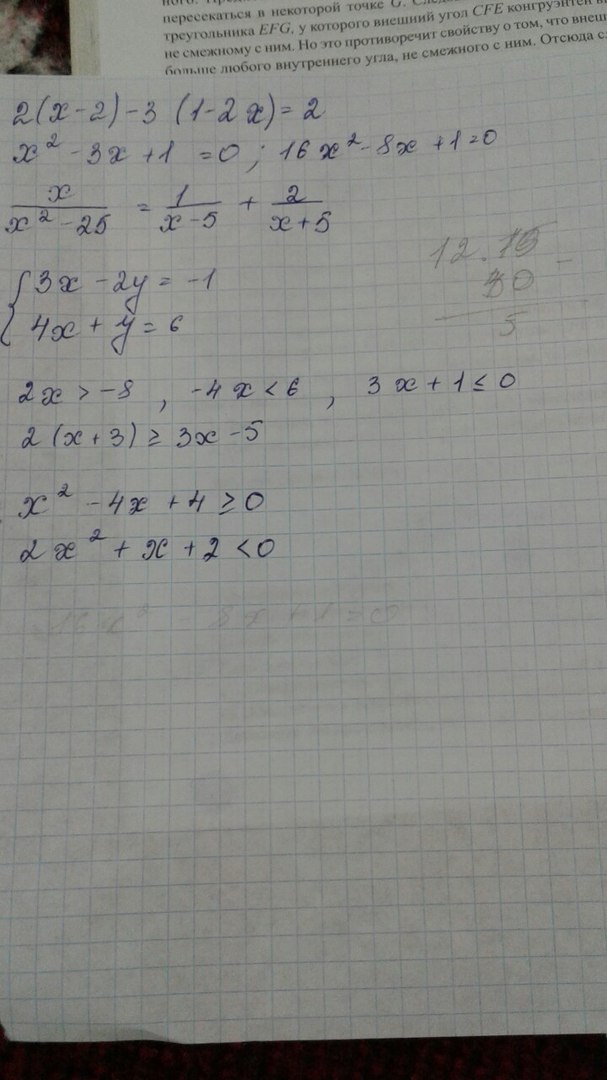 пересекаться в некоторой точке G. Следа
треугольника EFG, у которого внешний угол CFE конгруэнтен в
не смежному с ним. Но это противоречит свойству о том, что внеш
больше любого внутреннего угла, не смежного с ним. Отсюда сл
2(x-2)-3 (1-2x)=2
x² -3x+1 =0 ; 16x²-8x+1=0
x/(x²-25) = 1/(x-5) + 2/(x+5)
{ 3x-2y=-1
4x+y=6
2x>-8 , -4x<6 , 3x+1≤0
2(x+3)≥3x-5
x²-4x+4≥0
2x²+x+2<0
16x² - 8x+1=0